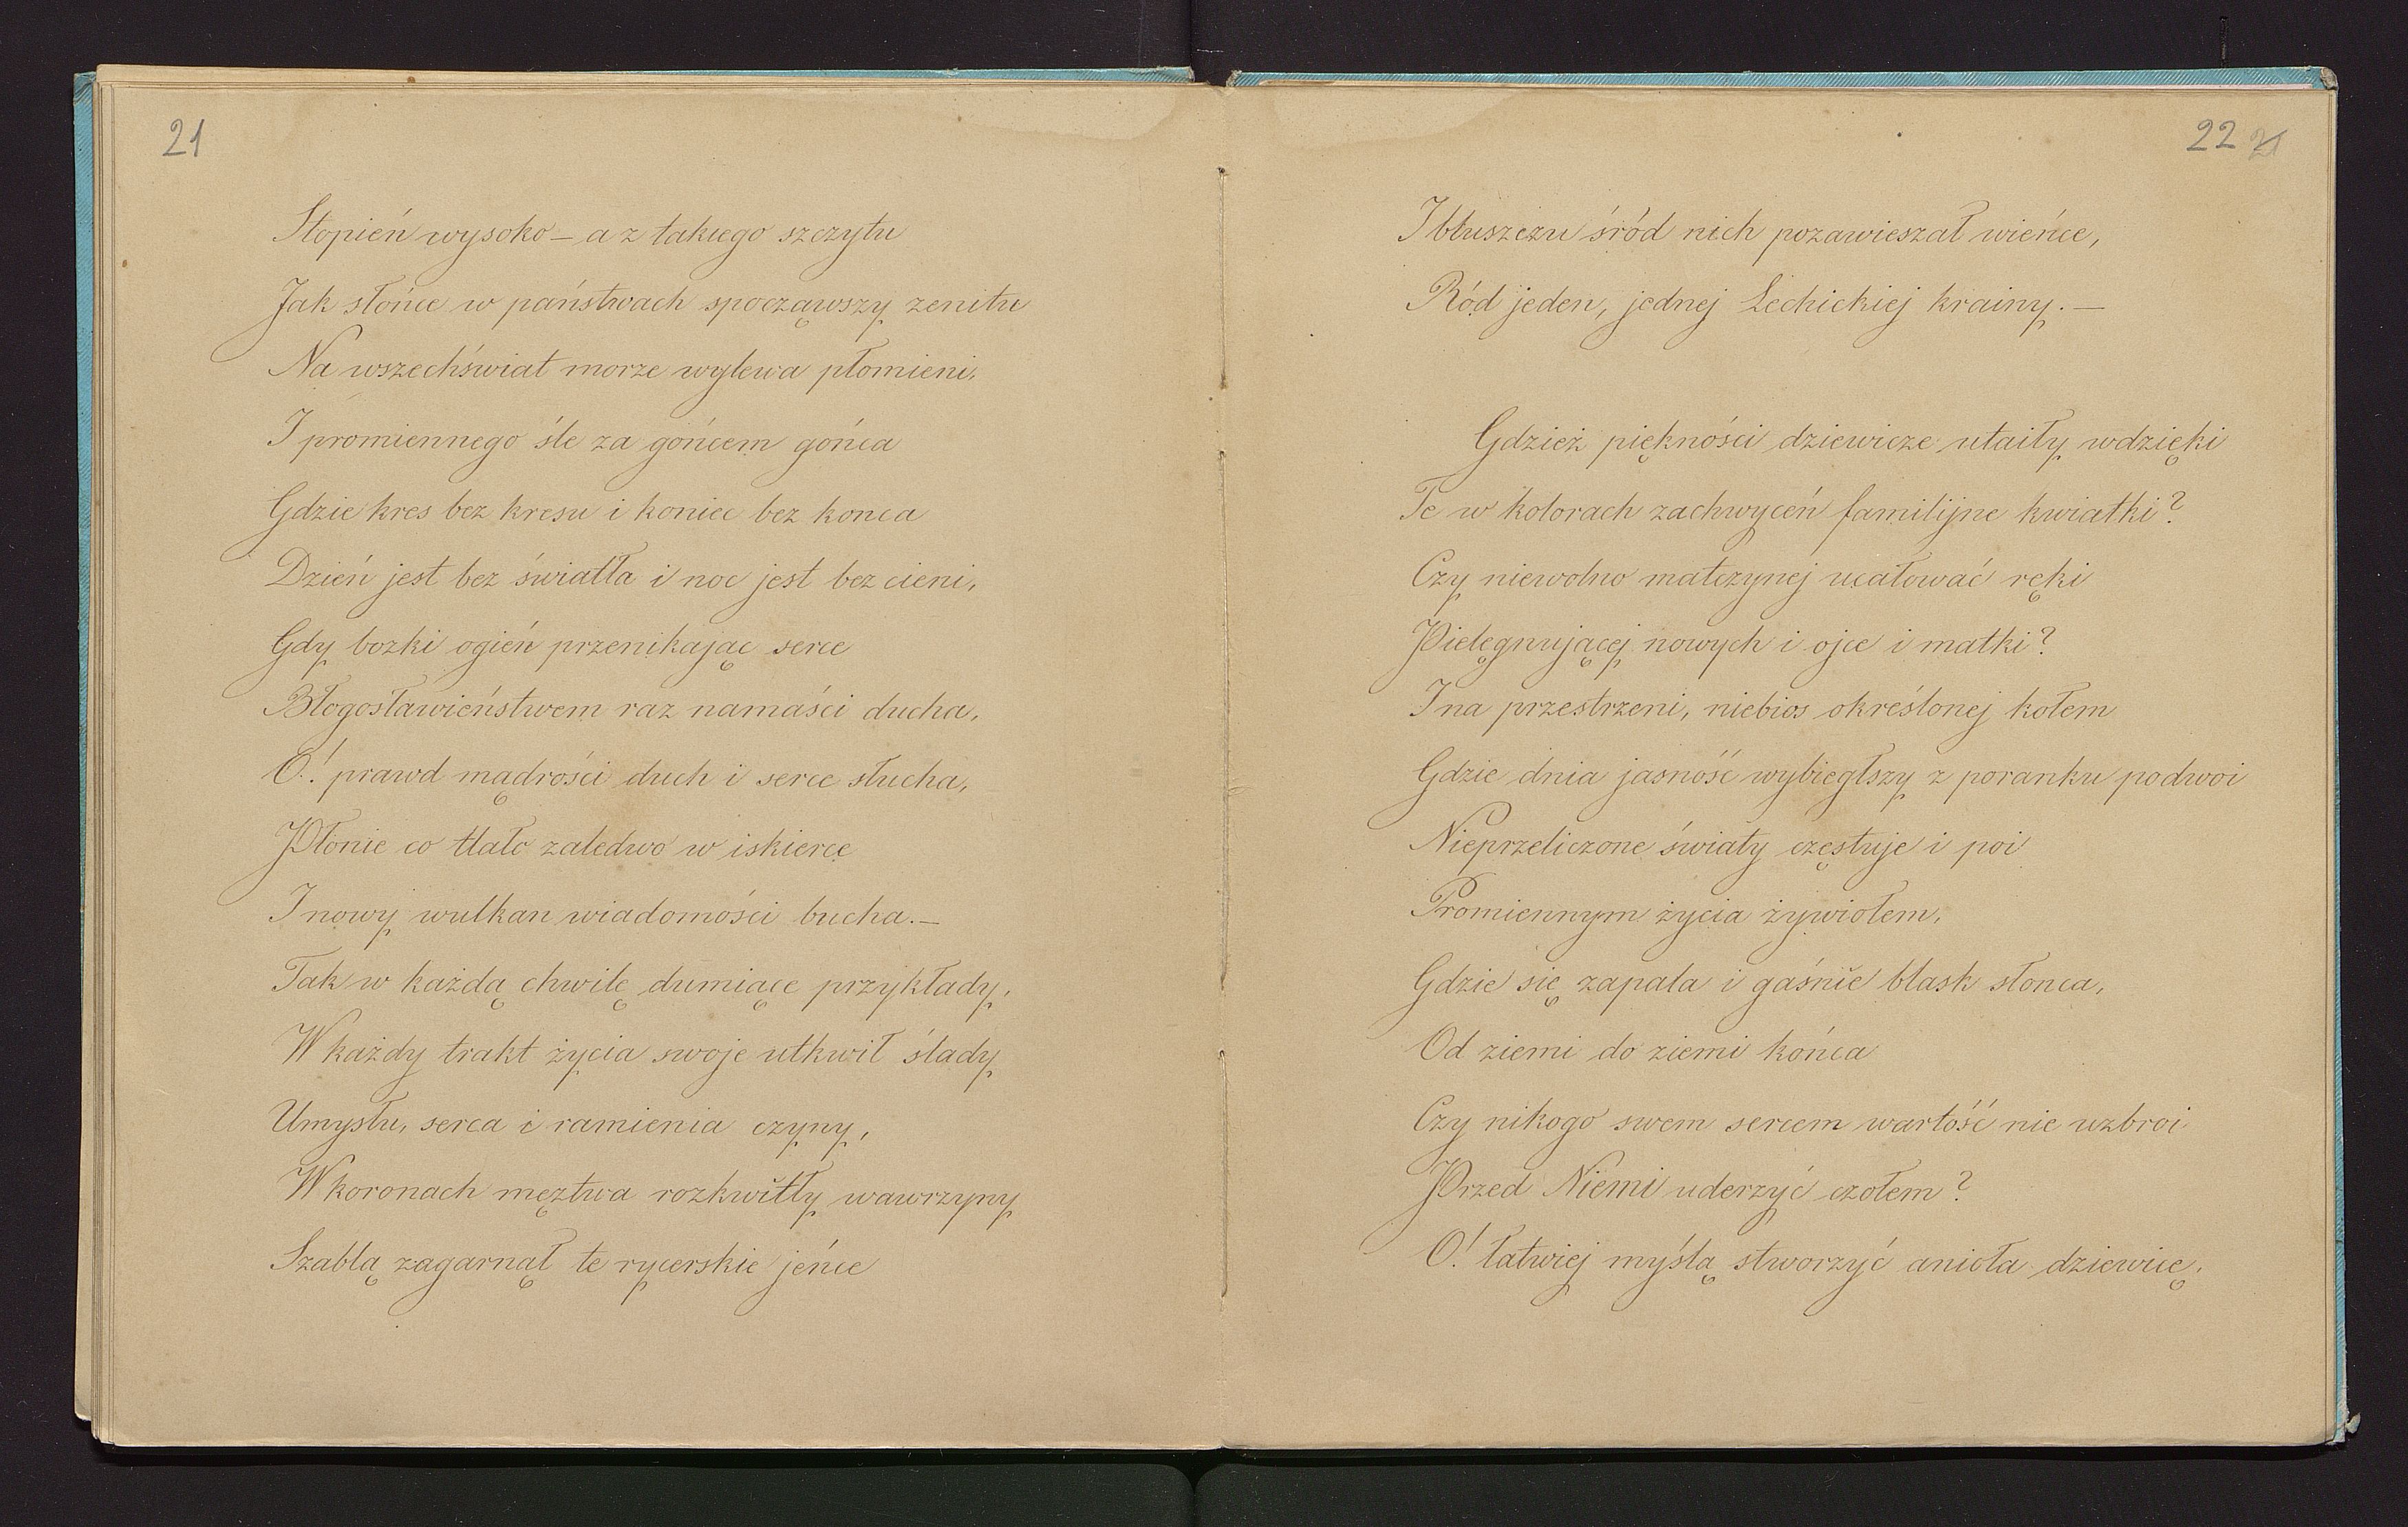 21
Stopień wysoko – a z takiego szczytu
Jak słońce w państwach spocząwszy zenitu
Na wszechświat morze wylewa płomieni,
I promiennego śle za gońcem gońca
Gdzie kres bez kresu i koniec bez konca
Dzień jest bez światła i noc jest bez cieni,
Gdy bozki ogień przenikając serce
Błogosławieństwem raz namaści ducha,
O! prawd mądrości duch i serce słucha,
Płonie co tlało zaledwo w iskierce
I nowy wulkan wiadomości bucha. –
Tak w każdą chwilę dumiące przykłady,
W każdy trakt życia swoje utkwił ślady
Umysłu, serca i ramienia czyny,
W koronach męztwa rozkwitły wawrzyny
Szablą zagarnął te rycerskie jeńce
22 21
I bluszczu śród nich pozawieszał wieńce,
Ród jeden, jednej Lechickiej krainy. –
Gdzież piękności dziewicze utaiły wdzięki
Te w kolorach zachwyceń familijne kwiatki?
Czy niewolno matczynej ucałować ręki
Pielęgnującej nowych i ojce i matki?
I na przestrzeni, niebios określonej kołem
Gdzie dnia jasność wybiegłszy z poranku podwoi
Nieprzeliczone światy częstuje i poi
Promiennym życia żywiołem,
Gdzie się zapala i gaśnie blask słonca,
Od ziemi do ziemi końca
Czy nikogo swem sercem wartość nie uzbroi
Przed Niemi uderzyć czołem?
O! łatwiej myślą stworzyć anioła dziewicę,